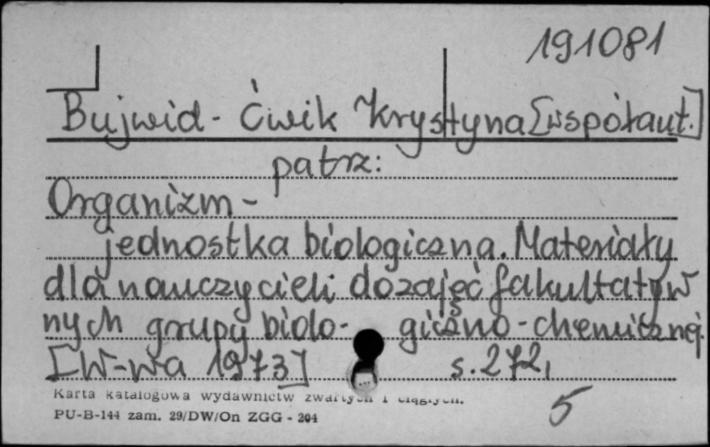 191081
Bujwid-Ćwik Krystyna [współaut.]
patrz:
Organizm -
jednostka biologiczna. Materiały
dla nauczycieli do zajęć fakultatyw
nych grupy biolo- giczno-chemicznej.
[W-wa 1973] s. 272,
5
Karta katalogowa wydawnictw zwartych i ciągłych.
PU-B-144 zam. 29/DW/On ZGG - 204